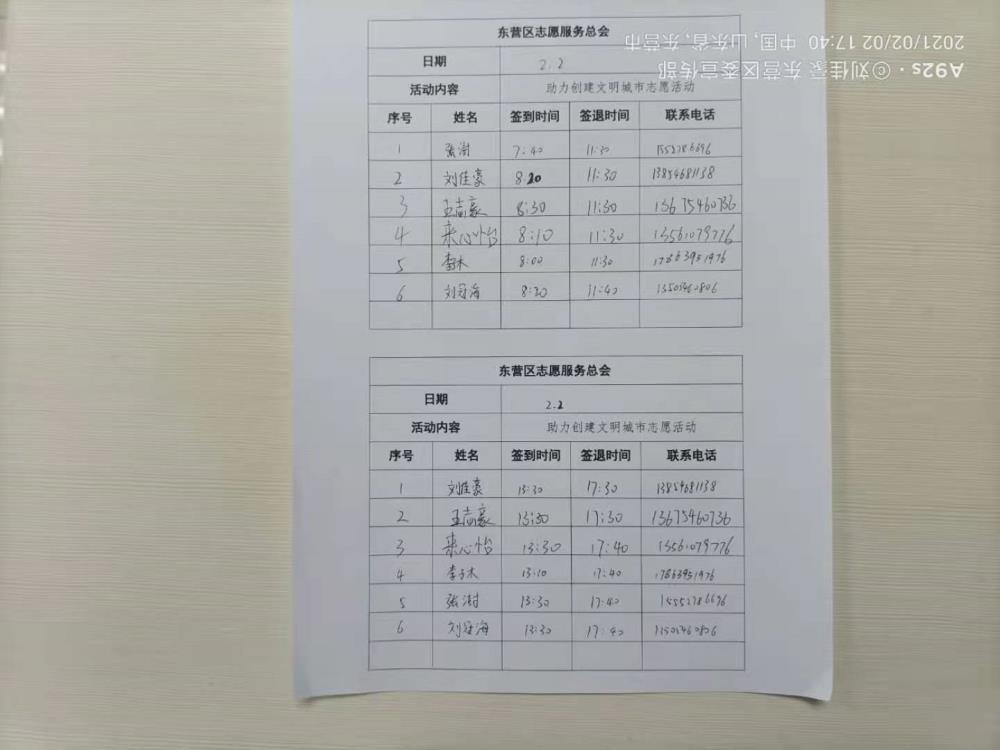 东营区志愿服务总会
日期 2.2
活动内容 助力创建文明城市志愿活动
序号 姓名 签到时间 签退时间 联系电话
1 张澍 7:40 11:30
2 刘佳豪 8:20 11:30 13854681138
3 王志豪 8:30 11:30 13675460736
4 来心怡 8:10 11:30 13561079776
5 李木 8:00 11:30 17863951976
6 刘冠海 8:20 11:40
东营区志愿服务总会
日期 2.2
活动内容 助力创建文明城市志愿活动
序号 姓名 签到时间 签退时间 联系电话
1 刘佳豪 13:30 17:30 13854681138
2 王志豪 13:30 17:30 13675460736
3 来心怡 13:30 17:40 13561079776
4 李子木 13:10 17:40 17863951976
5 张澍 13:30 17:40 15552786696
6 刘冠海 13:30 17:40
A92s · ©刘佳豪 东营区委宣传部
2021/02/02 17:40 中国, 山东省, 东营市